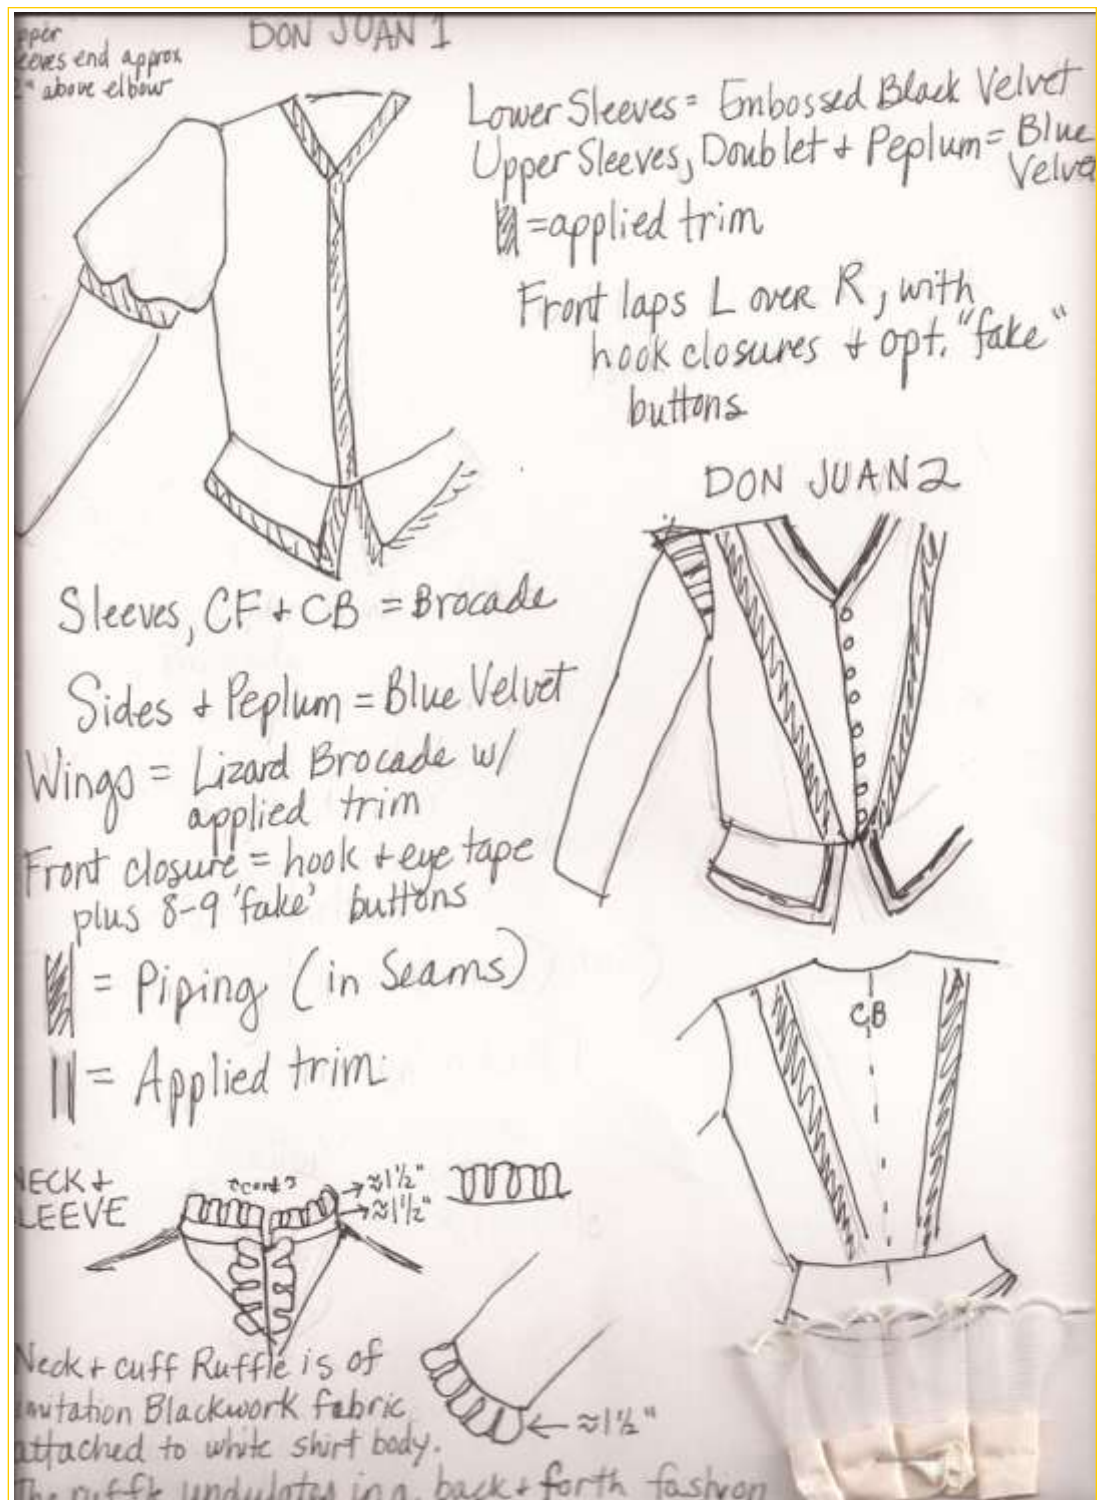 DON JUAN 1
pper
eeves end approx
2" above elbow
Lower Sleeves = Embossed Black Velvet
Upper Sleeves, Doublet + Peplum = Blue
Velve
=applied trim
Front laps L over R, with
hook closures + opt. "fake"
buttons
DON JUAN 2
Sleeves, CF + CB = Brocade
Sides + Peplum = Blue Velvet
Wings = Lizard Brocade w/
applied trim
Front closure = hook + eye tape
plus 8-9 'fake' buttons
= Piping (in Seams)
= Applied trim
CB
NECK +
LEEVE
≈1½"
≈1½"
≈1½"
Neck + cuff Ruffle is of
mitation Blackwork fabric
attached to white shirt body.
The ruffle undulates in a back + forth fashion